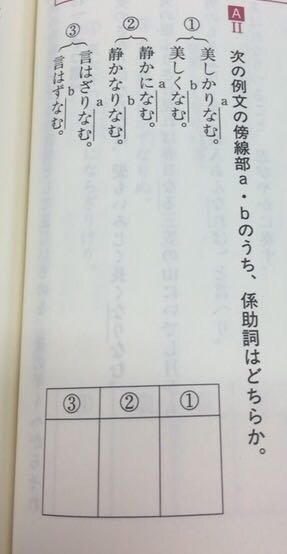 A II 次の例文の傍線部a・bのうち、係助詞はどちらか。
① 美しかりなむ。a
美しくなむ。b
② 静かになむ。a
静かなりなむ。b
③ 言はざりなむ。a
言はずなむ。b
① ② ③